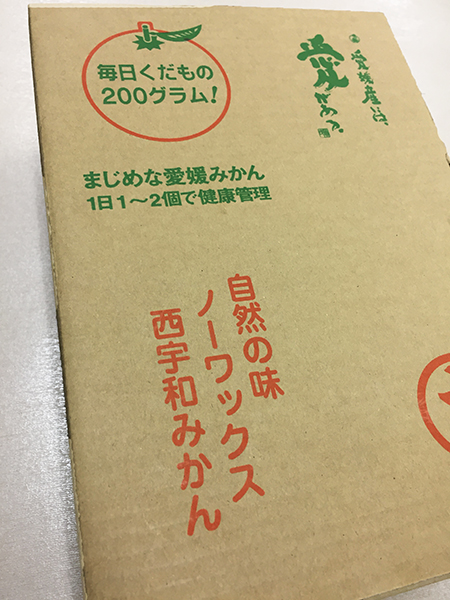 毎日くだもの
200グラム!
愛媛産には、
愛がある。
まじめな愛媛みかん
1日1〜2個で健康管理
自然の味
ノーワックス
西宇和みかん